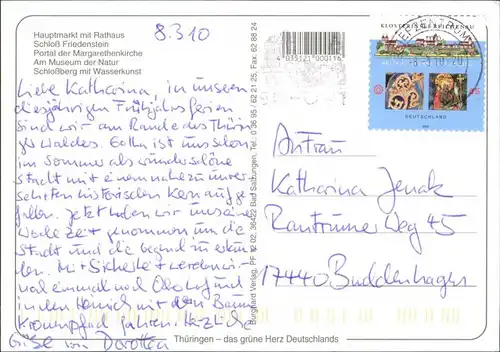 Hauptmarkt mit Rathaus
Schloß Friedenstein
Portal der Margarethenkirche
Am Museum der Natur
Schloßberg mit Wasserkunst
8.3.10
Liebe Katharina, in unseren
diesjährigen Frühjahrsferien
sind wir am Rande des Thürin
ger Waldes. Gotha ist uns schon
im Sommer als wunderschöne
Stadt mit einem nahezu unver
sehrten historischen Kern aufge
fallen. Jetzt haben wir uns eine
Woche Zeit genommen um die
Stadt und die Gegend zu erkun
den. Mit Sicherheit werden wir
noch einmal auf
in den Hainich mit dem Baum
kronenpfad fahren. Herzliche
Grüße von Dorothea
Burghard Verlag, PF 12 02, 36422 Bad Salzungen, Tel. 0 36 95 / 62 21 25, Fax: 62 88 24
4 035121 000116
KLOSTERINSEL REICHENAU
45
DEUTSCHLAND
BRIEFZENTRUM
An Frau
Katharina Jenak
Rantrumer Weg 45
17440 Buddenhagen
Thüringen – das grüne Herz Deutschlands